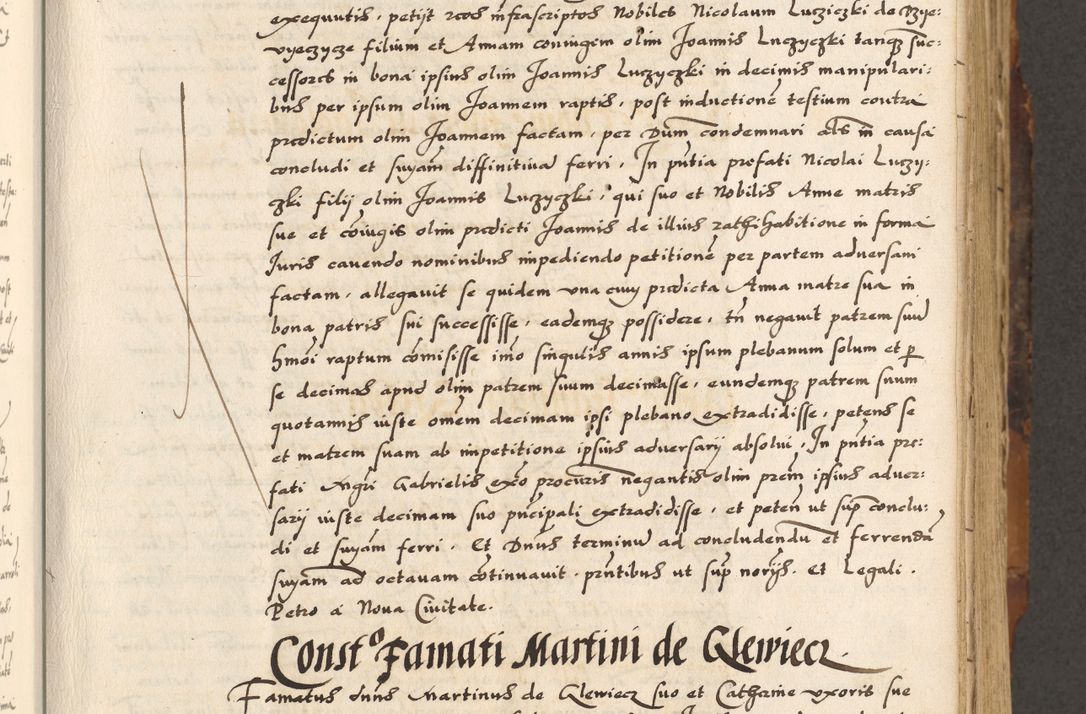 exequutis, petijt reos infrascriptos Nobiles Nicolaum Lucziczki de Bzye⸗
vyeczycze filium et Annam coniugem olim Joannis Luczyczki tanqz suc⸗
cessores in bona ipsius olim Joannis Luczyczki in decimis manipulari⸗
bus per ipsum olim Joannem raptis, post inductionē testium contra
predictum olim Joannem factam, per Dnm̄ condemnari als in causa
concludi et snyam diffinitiua ferri. In pntia prefati Nicolai Luczy⸗
czki filij olim Joannis Luczyczki, qui suo et Nobilis Anne matris
sue et cōiugis olim predicti Joannis de illius rathihabitione in forma
Juris cavendo nominibus impediendo petitionē per partem adversam
factam, allegauit se quidem vna cum predicta Anna matre sua in
bona patris sui successisse, eademqz possidere, tn negauit patrem suū
hmōi raptum cōmisisse imo singulis annis ipsum plebanum solum et p
se decimas apud olim patrem suum decimasse, eundemqz patrem suum
quotannis iuste omēm decimam ipsi plebano extradidisse, petens se
et matrem suam ab impetitione ipsius adversarij absolui. In pntia pre⸗
fati Mgri Gabrielis exo procuris negantis olim prem ipsius adver⸗
sarij iuste decimam suo pncipali extradidisse, et peteñ ut sup̄ conclu⸗
di et snyam ferri. Et Dnus terminū ad concludendū et ferrendā
snyam ad octauam cōtinuauit. pntibus ut sup̄ norijs. Et Legali.
Petro a Noua Ciuitate.
Constº Famati Martini de Glewiecz.
Famatus dnūs Martinus de Glewiecz suo et Catherine vxoris sue